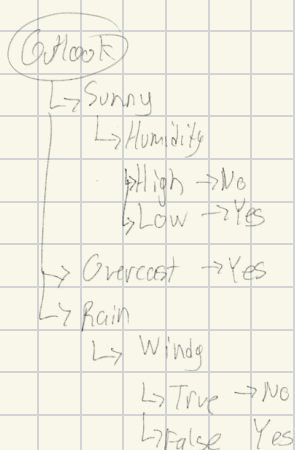 Outlook
↳ Sunny
↳ Humidity
↳ High → No
↳ Low → Yes
→ Overcast → Yes
↳ Rain
↳ Windy
↳ True → No
↳ False Yes